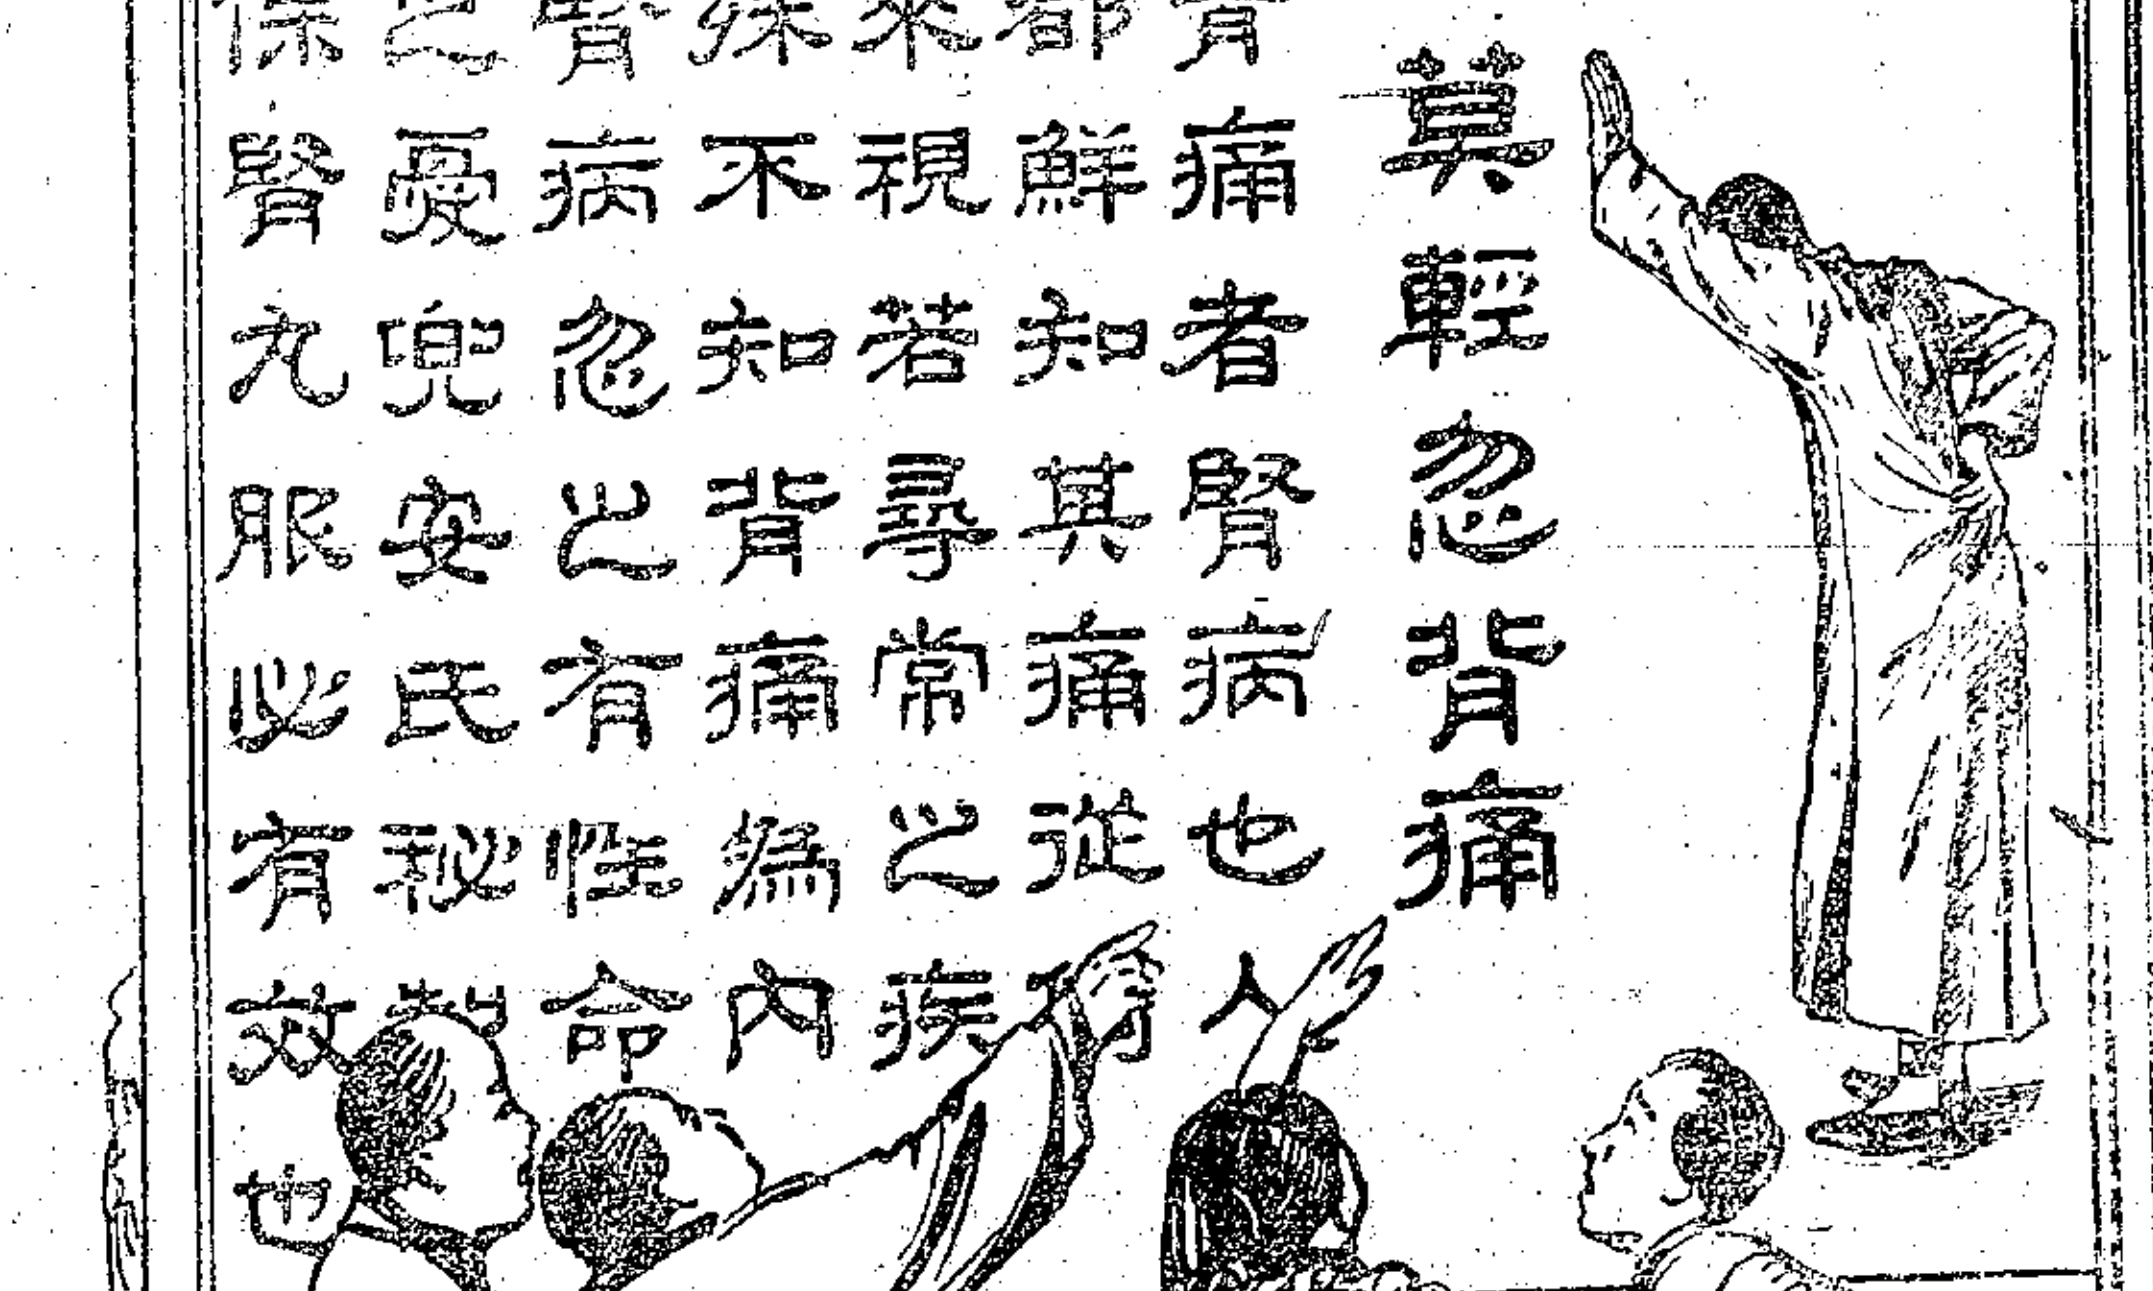 莫輕忽背痛
背痛者腎病也人
都鮮知其痛從
來視若尋常之疾
殊不知背痛為內
腎病忽之有性命
之憂兜安氏秘製
保腎丸服必有效也